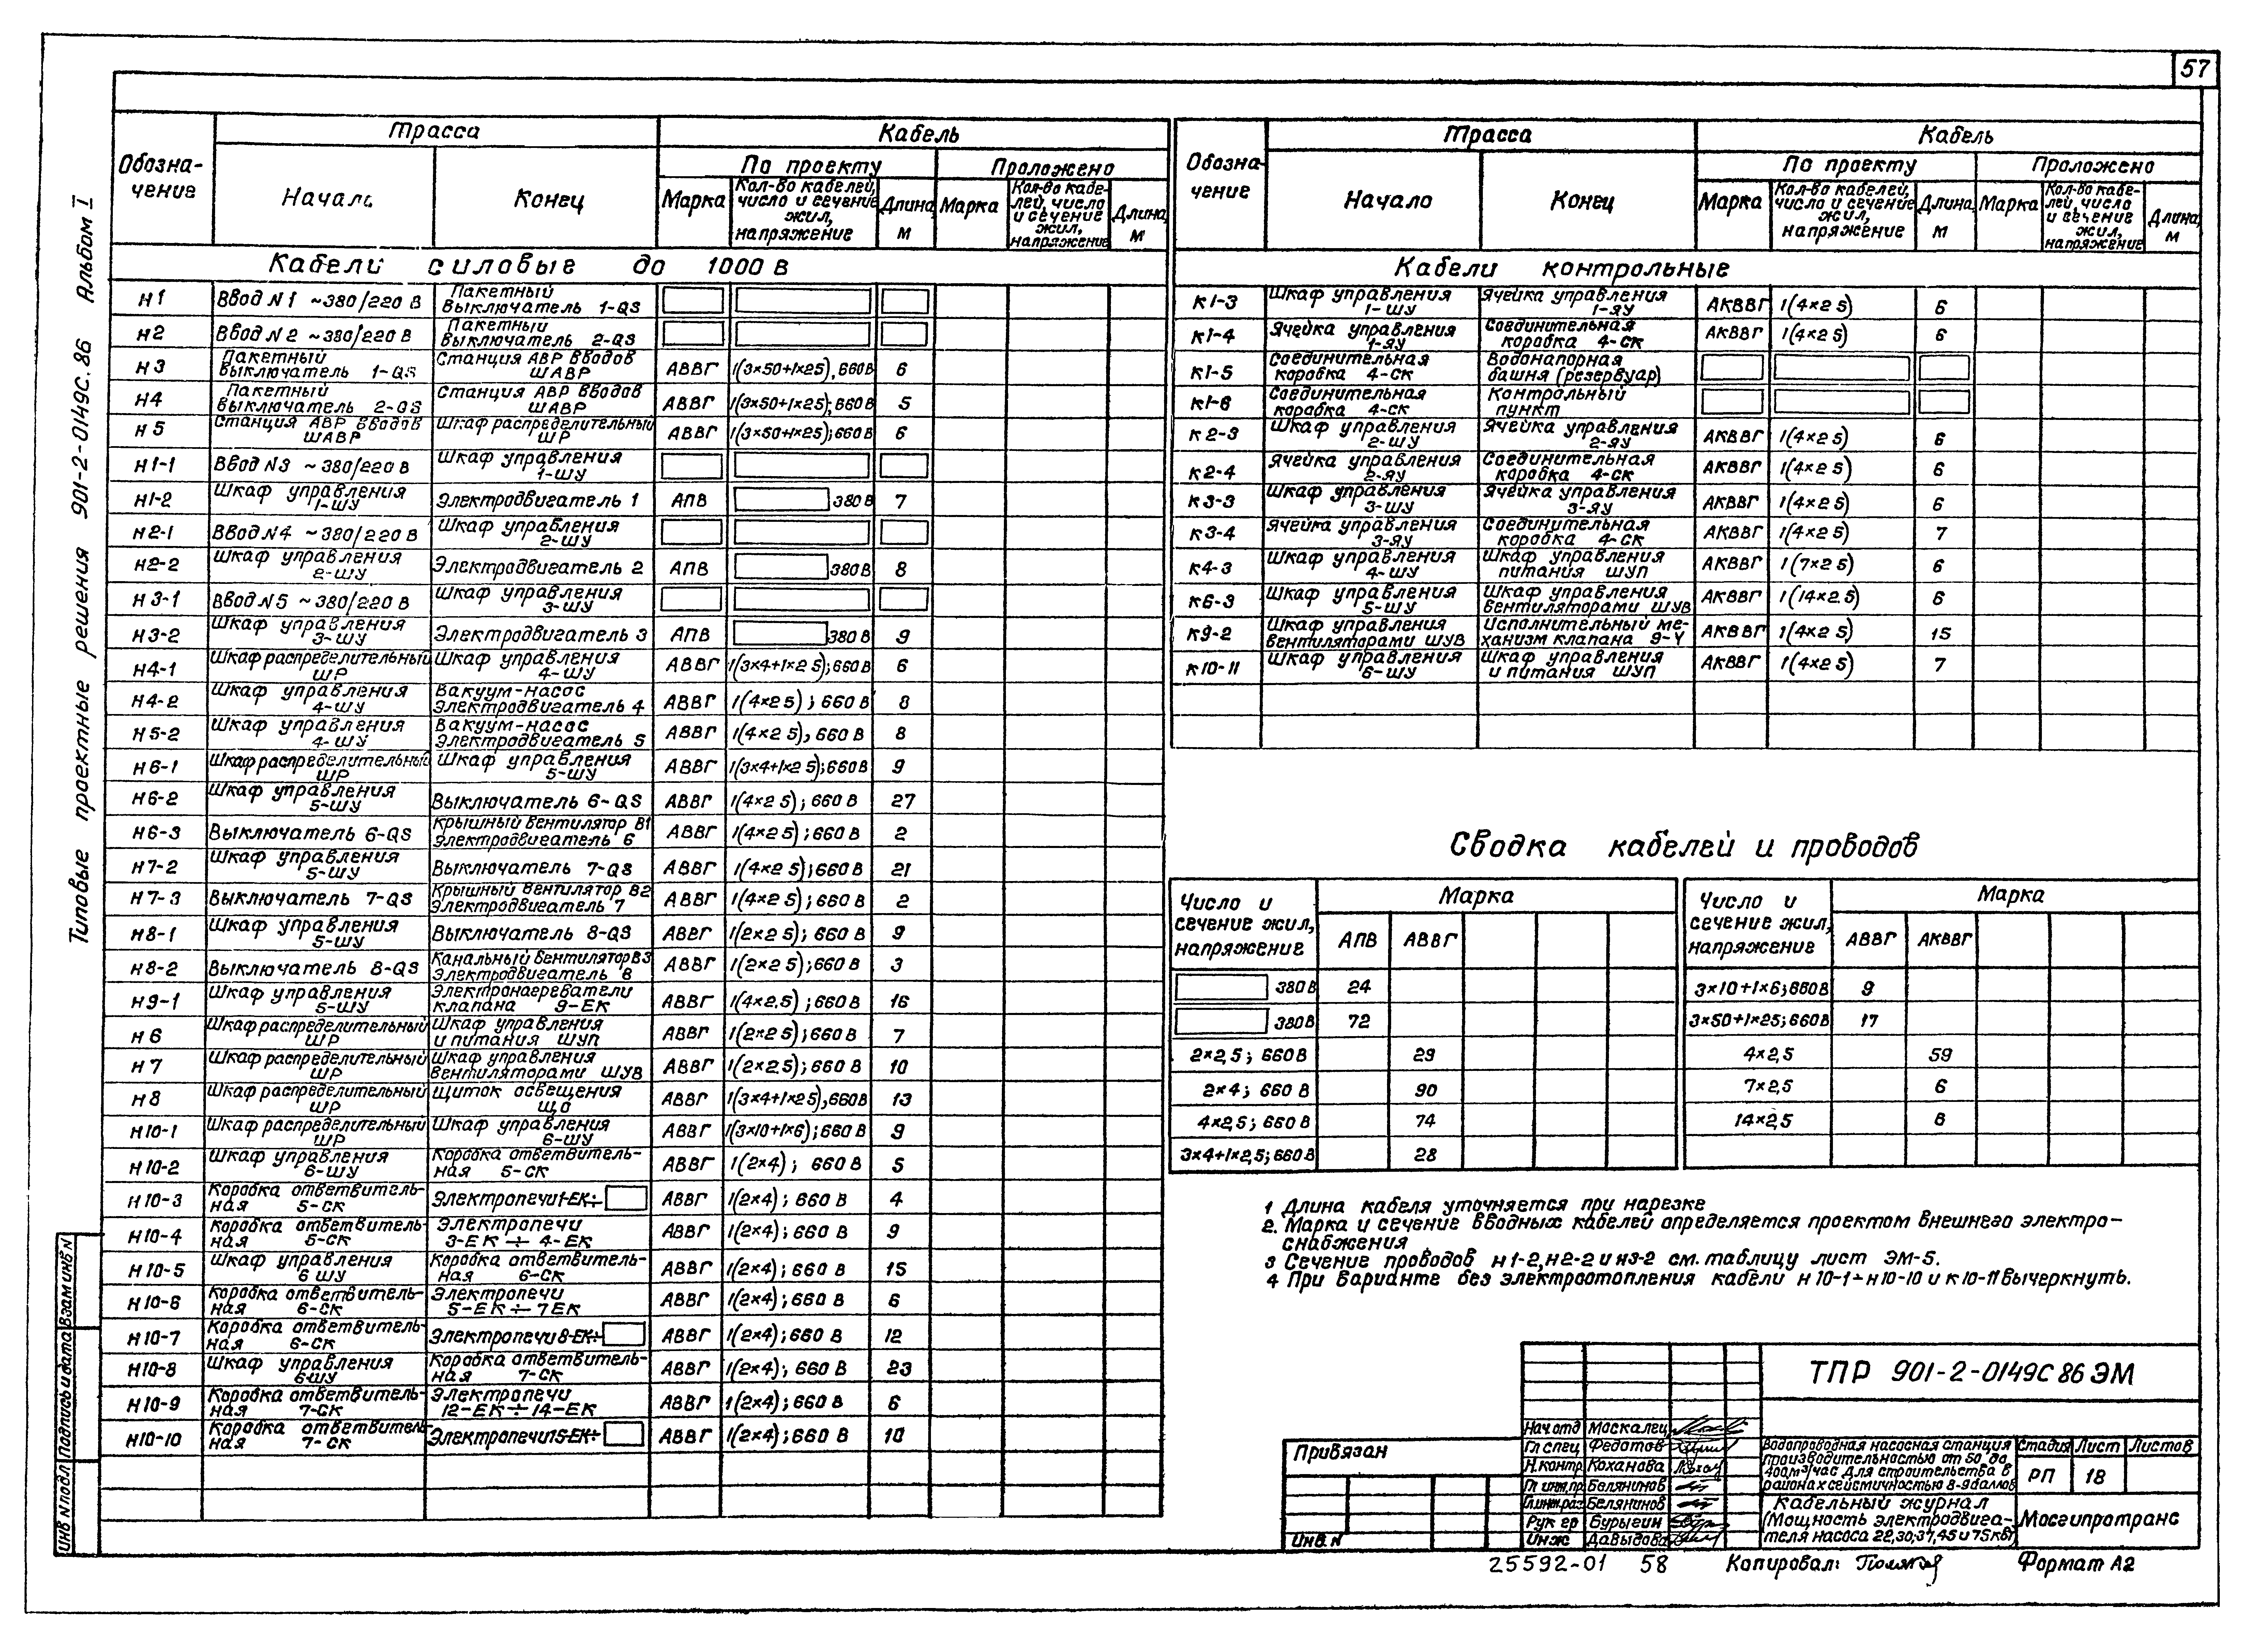 57
Типовые проектные решения 901-2-0149с.86 Альбом I
Обозна-
чение
Трасса
Кабель
Начало
Конец
По проекту
Проложено
Марка
Кол-во кабелей,
число и сечение
жил,
напряжение
Длина,
м
Марка
Кол-во кабе-
лей, число
и сечение
жил,
напряжение
Длина,
м
Кабели силовые до 1000 В
Н1 Ввод N1 ~380/220 В Пакетный выключатель 1-QS
Н2 Ввод N2 ~380/220 В Пакетный выключатель 2-QS
Н3 Пакетный выключатель 1-QS Станция АВР вводов ШАВР АВВГ 1(3×50+1×25), 660В 6
Н4 Пакетный выключатель 2-QS Станция АВР вводов ШАВР АВВГ 1(3×50+1×25), 660В 5
Н5 Станция АВР вводов ШАВР Шкаф распределительный ШР АВВГ 1(3×50+1×25); 660В 6
Н1-1 Ввод N3 ~380/220 В Шкаф управления 1-ШУ
Н1-2 Шкаф управления 1-ШУ Электродвигатель 1 АПВ 380В 7
Н2-1 Ввод N4 ~380/220 В Шкаф управления 2-ШУ
Н2-2 Шкаф управления 2-ШУ Электродвигатель 2 АПВ 380В 8
Н3-1 Ввод N5 ~380/220 В Шкаф управления 3-ШУ
Н3-2 Шкаф управления 3-ШУ Электродвигатель 3 АПВ 380В 9
Н4-1 Шкаф распределительный ШР Шкаф управления 4-ШУ АВВГ 1(3×4+1×2 5); 660В 6
Н4-2 Шкаф управления 4-ШУ Вакуум-насос Электродвигатель 4 АВВГ 1(4×2 5); 660 В 8
Н5-2 Шкаф управления 4-ШУ Вакуум-насос Электродвигатель 5 АВВГ 1(4×2 5), 660 В 8
Н6-1 Шкаф распределительный ШР Шкаф управления 5-ШУ АВВГ 1(3×4+1×2 5); 660В 9
Н6-2 Шкаф управления 5-ШУ Выключатель 6-QS АВВГ 1(4×2 5); 660 В 27
Н6-3 Выключатель 6-QS Крышный вентилятор В1 Электродвигатель 6 АВВГ 1(4×2 5); 660 В 2
Н7-2 Шкаф управления 5-ШУ Выключатель 7-QS АВВГ 1(4×2 5); 660В 21
Н7-3 Выключатель 7-QS Крышный вентилятор В2 Электродвигатель 7 АВВГ 1(4×2 5); 660 В 2
Н8-1 Шкаф управления 5-ШУ Выключатель 8-QS АВВГ 1(2×2 5); 660 В 9
Н8-2 Выключатель 8-QS Канальный вентилятор В3 Электродвигатель 8 АВВГ 1(2×2 5); 660 В 3
Н9-1 Шкаф управления 5-ШУ Электронагреватели клапана 9-ЕК АВВГ 1(4×2,5); 660В 16
Н6 Шкаф распределительный ШР Шкаф управления и питания ШУП АВВГ 1(2×2 5); 660В 7
Н7 Шкаф распределительный ШР Шкаф управления вентиляторами ШУВ АВВГ 1(2×2.5); 660В 10
Н8 Шкаф распределительный ШР Щиток освещения ЩО АВВГ 1(3×4+1×2 5), 660В 13
Н10-1 Шкаф распределительный ШР Шкаф управления 6-ШУ АВВГ 1(3×10+1×6); 660В 9
Н10-2 Шкаф управления 6-ШУ Коробка ответвитель- ная 5-СК АВВГ 1(2×4); 660 В 5
Н10-3 Коробка ответвитель- ная 5-СК Электропечи 1-ЕК÷ АВВГ 1(2×4); 660 В 4
Н10-4 Коробка ответвитель- ная 5-СК Электропечи 3-ЕК ÷ 4-ЕК АВВГ 1(2×4); 660 В 9
Н10-5 Шкаф управления 6 ШУ Коробка ответвитель- ная 6-СК АВВГ 1(2×4); 660 В 15
Н10-6 Коробка ответвитель- ная 6-СК Электропечи 5-ЕК ÷ 7ЕК АВВГ 1(2×4); 660 В 6
Н10-7 Коробка ответвитель- ная 6-СК Электропечи 8-ЕК÷ АВВГ 1(2×4); 660 В 12
Н10-8 Шкаф управления 6ШУ Коробка ответвитель- ная 7-СК АВВГ 1(2×4); 660 В 23
Н10-9 Коробка ответвитель- ная 7-СК Электропечи 12-ЕК ÷ 14-ЕК АВВГ 1(2×4); 660 В 6
Н10-10 Коробка ответвитель- ная 7-СК Электропечи 15-ЕК÷ АВВГ 1(2×4); 660 В 10
Обозна-
чение
Трасса
Кабель
Начало
Конец
По проекту
Проложено
Марка
Кол-во кабелей,
число и сечение
жил,
напряжение
Длина,
м
Марка
Кол-во кабе-
лей, число
и сечение
жил,
напряжение
Длина,
м
Кабели контрольные
К1-3 Шкаф управления 1-ШУ Ячейка управления 1-ЯУ АКВВГ 1(4×2 5) 6
К1-4 Ячейка управления 1-ЯУ Соединительная коробка 4-СК АКВВГ 1(4×2 5) 6
К1-5 Соединительная коробка 4-СК Водонапорная башня (резервуар)
К1-6 Соединительная коробка 4-СК Контрольный пункт
К2-3 Шкаф управления 2-ШУ Ячейка управления 2-ЯУ АКВВГ 1(4×2 5) 6
К2-4 Ячейка управления 2-ЯУ Соединительная коробка 4-СК АКВВГ 1(4×2 5) 6
К3-3 Шкаф управления 3-ШУ Ячейка управления 3-ЯУ АКВВГ 1(4×2 5) 6
К3-4 Ячейка управления 3-ЯУ Соединительная коробка 4-СК АКВВГ 1(4×2 5) 7
К4-3 Шкаф управления 4-ШУ Шкаф управления питания ШУП АКВВГ 1(7×2 5) 6
К6-3 Шкаф управления 5-ШУ Шкаф управления вентиляторами ШУВ АКВВГ 1(14×2.5) 6
К9-2 Шкаф управления вентиляторами ШУВ Исполнительный ме- ханизм клапана 9-Y АКВВГ 1(4×2 5) 15
К10-11 Шкаф управления 6-ШУ Шкаф управления и питания ШУП АКВВГ 1(4×2 5) 7
Сводка кабелей и проводов
Число и
сечение жил,
напряжение
Марка
АПВ АВВГ
380В 24
380В 72
2×2,5; 660В 29
2×4; 660 В 90
4×2,5; 660 В 74
3×4+1×2,5; 660В 28
Число и
сечение жил,
напряжение
Марка
АВВГ АКВВГ
3×10+1×6; 660В 9
3×50+1×25; 660В 17
4×2,5 59
7×2,5 6
14×2,5 6
1 Длина кабеля уточняется при нарезке
2. Марка и сечение вводных кабелей определяется проектом внешнего электро-
снабжения
3 Сечение проводов Н1-2, Н2-2 и Н3-2 см. таблицу лист ЭМ-5.
4 При варианте без электроотопления кабели Н10-1÷Н10-10 и К10-11 вычеркнуть.
ТПР 901-2-0149с 86 ЭМ
Нач.отд Москалец
Гл спец Федотов
Н.контр Коханова
Гл инж.пр Белянинов
Гл.инж.раз Белянинов
Рук гр Бурыгин
Инж Давыдова
Водопроводная насосная станция
производительностью от 50 до
400м³/час для строительства в
районах сейсмичностью 8-9 баллов
Стадия Лист Листов
РП 18
Кабельный журнал
(Мощность электродвига-
теля насоса 22,30,37,45 и 75кВт)
Мосгипротранс
Привязан
Инв. N
Взам инв N
Подпись и дата
Инв N подл
25592-01 58
Копировал:
Формат А2